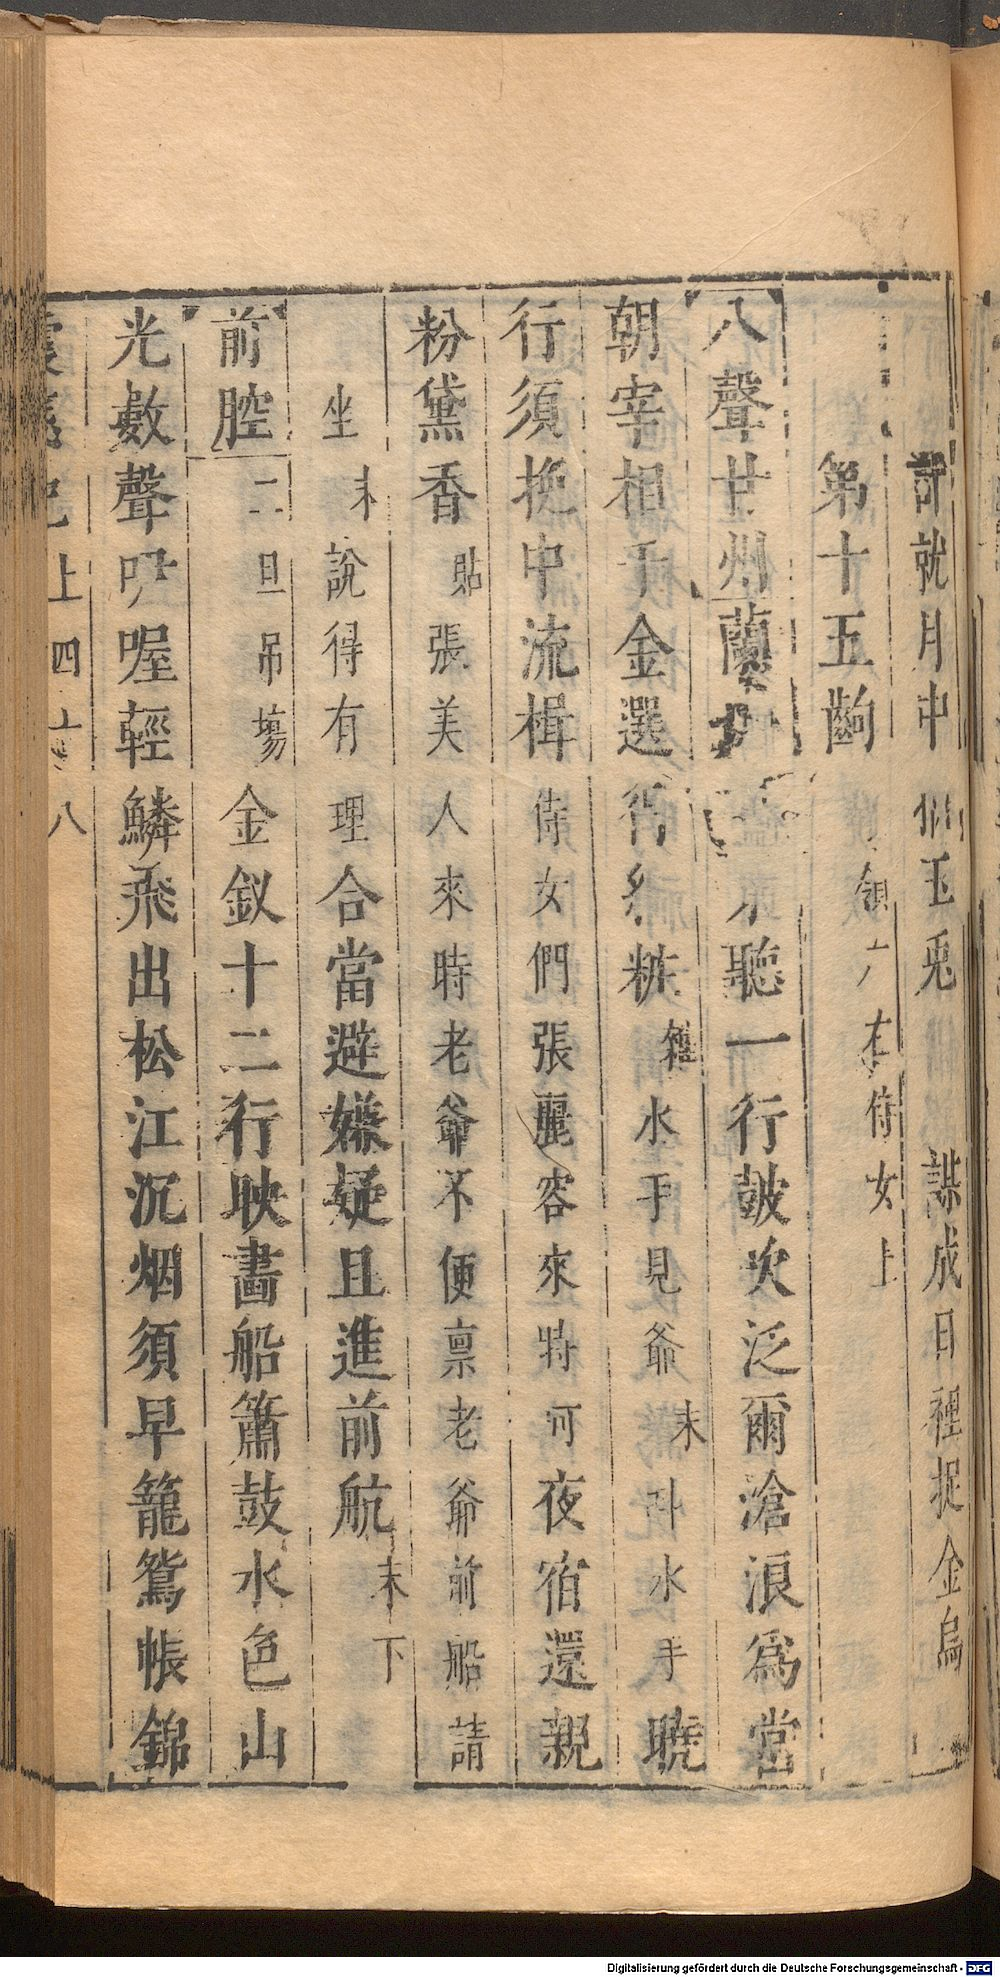 計就月中 玉兎 謀成日裡捉金烏
第十五齣
領 侍女上
八聲甘州蘭 聽一行鼓吹泛爾滄浪爲當
朝宰相千金選 粧雜水手見爺末 水手曉
行須挽中流楫侍女們張麗容來時何夜宿還親
粉黛香貼張美人來時老爺不便禀老爺前船請
坐末說得有理合當避嫌疑且進前航末下
前腔二旦吊場金釵十二行映畵船簫鼓水色山
光數聲 喔輕鱗飛出松江沉烟須早籠鴛帳錦
記上 四十八
Digitalisierung gefördert durch die Deutsche Forschungsgemeinschaft - DFG